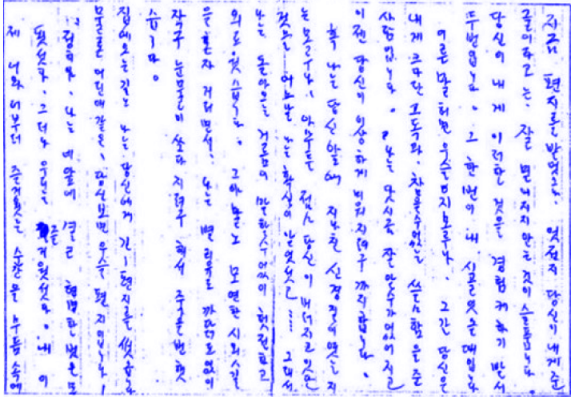 지금 편지를 받엇으나. 엇전지 당신이 내게준
글이라고는 잘 믿어지지 안는것이 슬픔니다.
당신이 내게 이러한 것을 경험케하기 발서
두번째입니다. 그 한번이 내 시골잇을때입니다.
이른말 허면 우슬지모루나. 그간 당신은
내게 크다란 고독과 참을수없는 쓸쓸함을 준
사람입니다. 나는 닷시금 잘 알수가없어지고
이젠 당신이 이상하게 미워질려구 까지 합니다.
혹 나는 당신 앞헤 지나친 신경질이엿는지
는 모루나. 아무튼 점점 당신이 머러지고잇단
것을 어느날 나는 확실이 알엇섯고..... 그래서
나는 돌아오는 거름이 말할수없이 헛전하고
외로윗습니다. 그야말노 모연한 시욋길
을 혼자 거러면서. 나는 별리유도 까닭도없이
작구 눈물이 쏘다지려구 해서 죽을번 햇
습니다.
집에오는길노 나는 당신에게 긴 편지를 썻습니다
물론 어린애같은, 당신보면 우슬 편지입니다.
정히야, 나는 네앞에 결코 현명한 벗은못
됫섯다. 그러나 우리는 즐거웟섯다. 내 이
제 너와더부러 즐거윗든 순간을 무듬속에